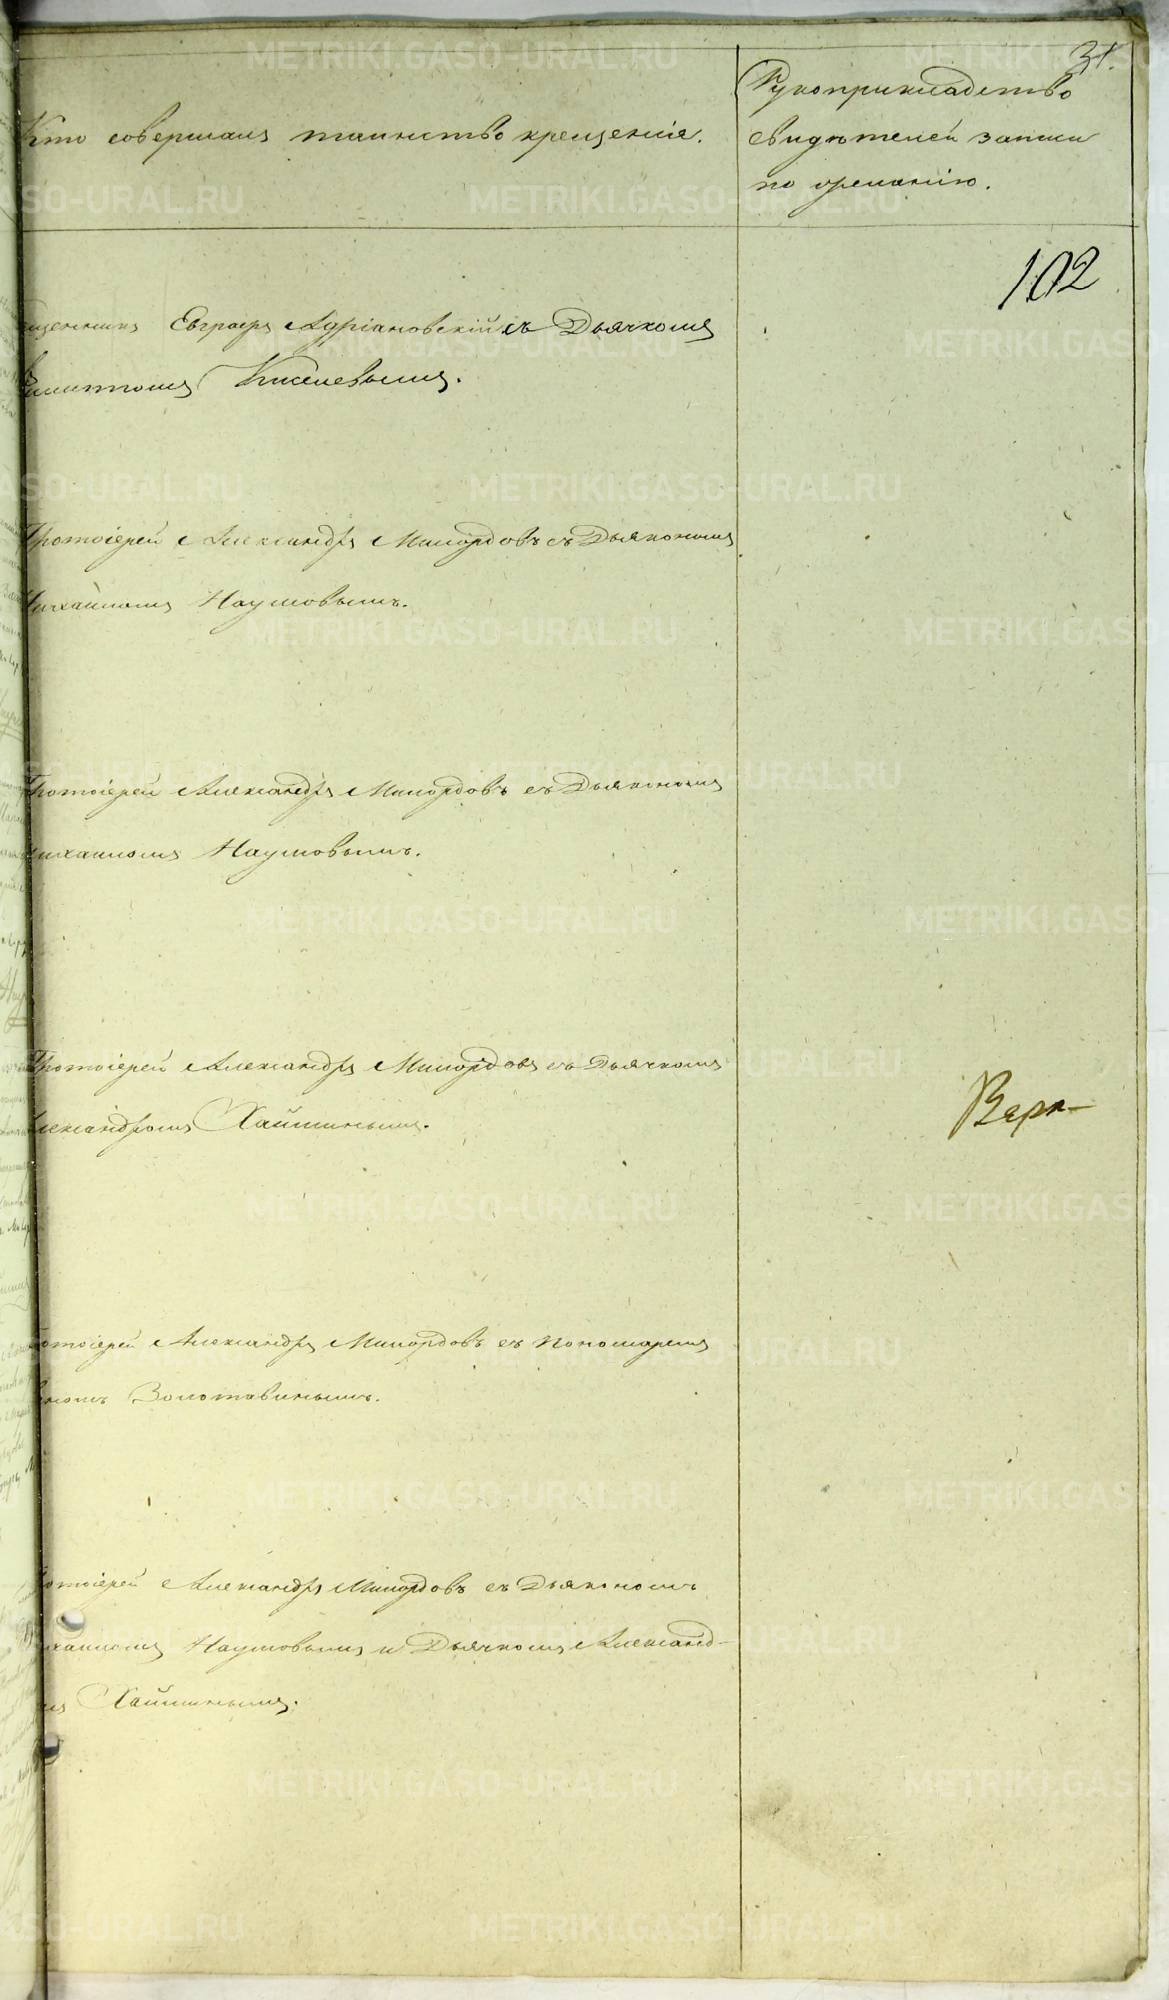 31.
Кто совершалъ таинство крещенія.
Рукоприкладство
свидѣтелей записи
по желанію.
102
щенникъ Евграфъ Адріановскій съ Дьячкомъ
Киселевымъ.
Протоіерей Александръ Милордовъ съ Дьякономъ
Михайломъ Наумовымъ.
Протоіерей Александръ Милордовъ съ Дьякономъ
ихаиломъ Наумовымъ.
Протоіерей Александръ Милордовъ съ Дьячкомъ
лександромъ Хайминымъ.
Верх-
отоіерей Александръ Милордовъ съ Пономаремъ
Золотавинымъ.
отоіерей Александръ Милордовъ съ Дьякономъ
хаиломъ Наумовымъ и Дьячкомъ Александ-
мъ Хайминымъ.
METRIKI.GASO-URAL.RU